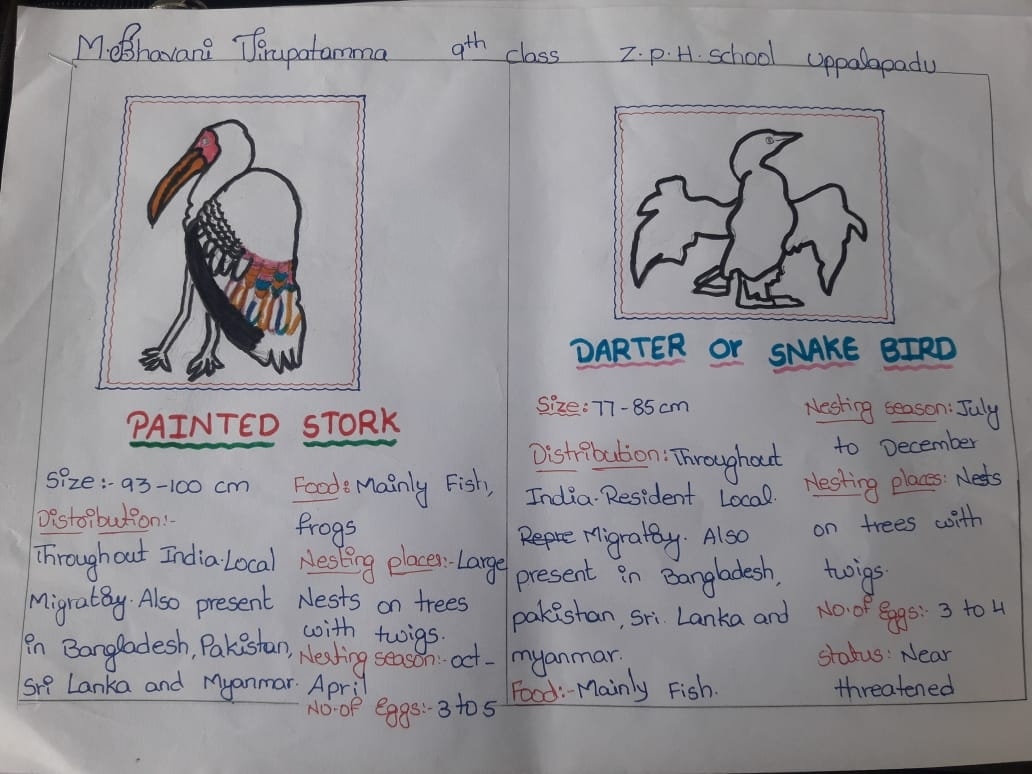 M. Bhavani Tirupatamma 9th class Z.P.H. School Uppalapadu
PAINTED STORK
Size:- 93-100 cm
Distribution:-
Throughout India. Local
Migratory. Also present
in Bangladesh, Pakistan,
Sri Lanka and Myanmar.
Food: Mainly Fish,
frogs
Nesting places:- Large
Nests on trees
with twigs.
Nesting season:- oct-
April
No. of Eggs:- 3 to 5
DARTER or SNAKE BIRD
Size: 77-85 cm
Distribution: Throughout
India. Resident Local.
Repre Migratory. Also
present in Bangladesh,
pakistan, Sri. Lanka and
myanmar.
Food:- Mainly Fish.
Nesting season: July
to December
Nesting places: Nests
on trees with
twigs.
No. of Eggs:- 3 to 4
Status: Near
threatened